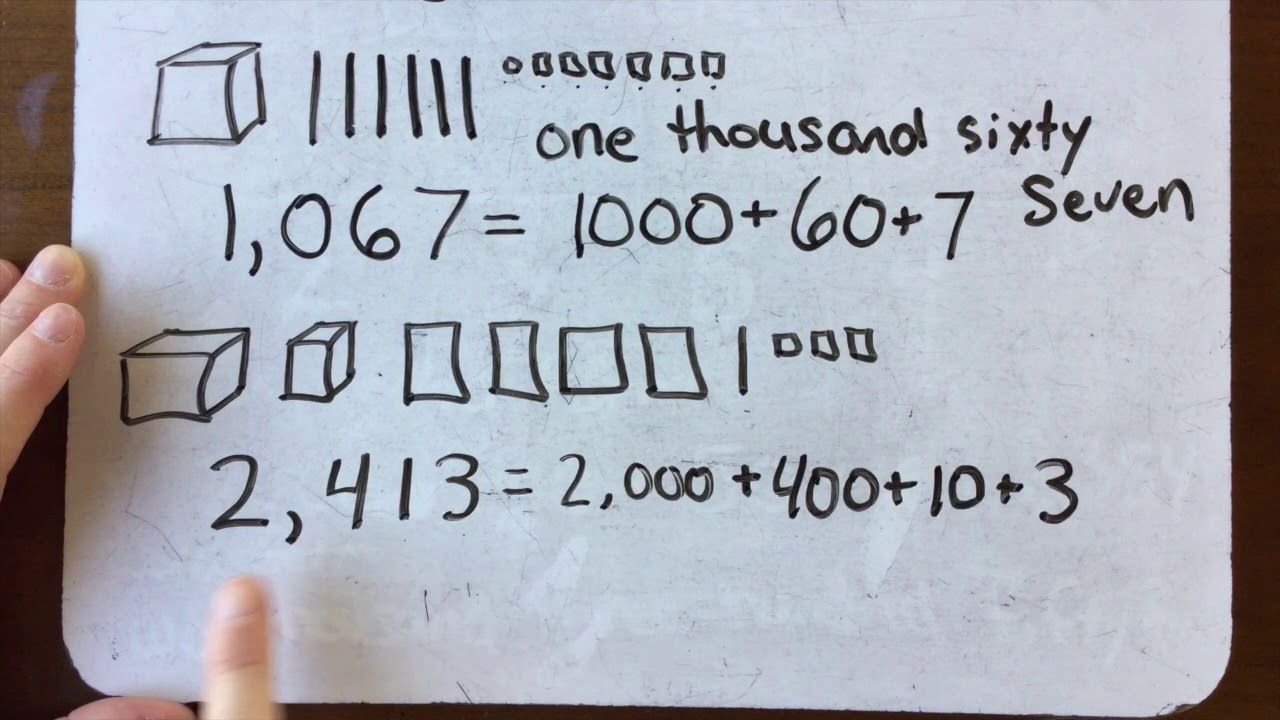 one thousand sixty
seven
1,067 = 1000 + 60 + 7
2,413 = 2,000 + 400 + 10 + 3